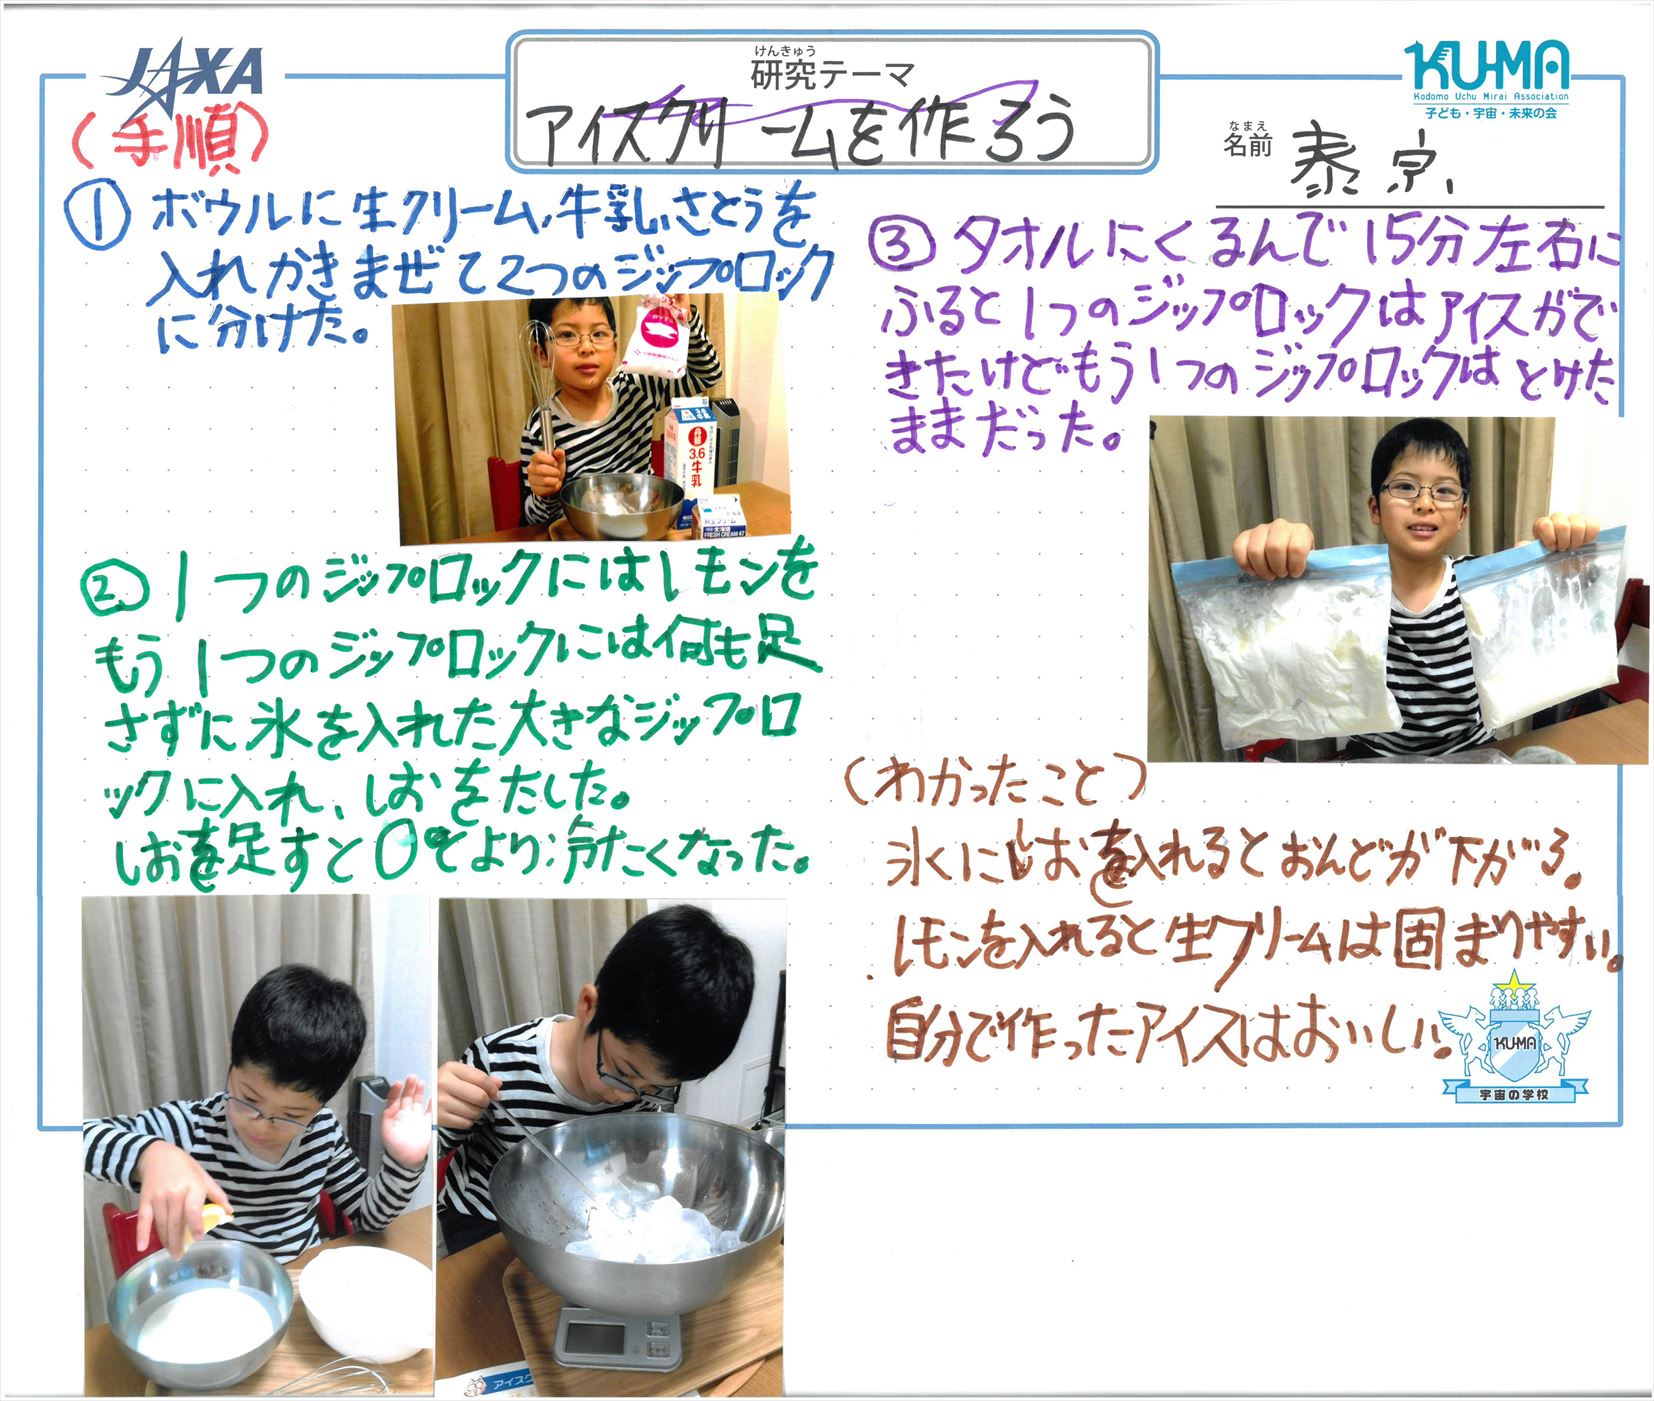 JAXA
けんきゅう
研究テーマ
アイスクリームを作ろう
KU-MA
Kodomo Uchu Mirai Association
子ども・宇宙・未来の会
なまえ
名前
泰宗
(手順)
① ボウルに生クリーム,牛乳,さとうを
入れかきまぜて2つのジップロック
に分けた。
3.6
牛乳
FRESH CREAM 47
② 1つのジップロックにはレモンを
もう1つのジップロックには何も足
さずに氷を入れた大きなジップロ
ックに入れ、しおをたした。
しおを足すと0℃より冷たくなった。
③ タオルにくるんで15分左右に
ふると1つのジップロックはアイスができ
きたけどもう1つのジップロックはとけた
ままだった。
(わかったこと)
氷くにしおを入れるとおんどが下がる。
レモンを入れると生クリームは固まりやすい。
自分で作ったアイスはおいしい。
KU-MA
宇宙の学校
アイスク